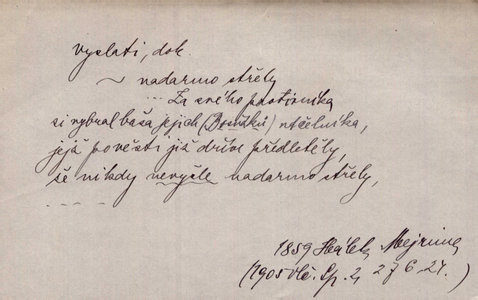 vyslati, dok.
~ nadarmo střely
... Za svého protivníka
si vybral baša jejich (Bosňáků) učelníka,
jejž pověsti již dříve předletěly,
že nikdy nevyšle nadarmo střely,
.....
1859 Hálek, Mejrima
(1905 Vlč. Sp. 2, 276-27.)